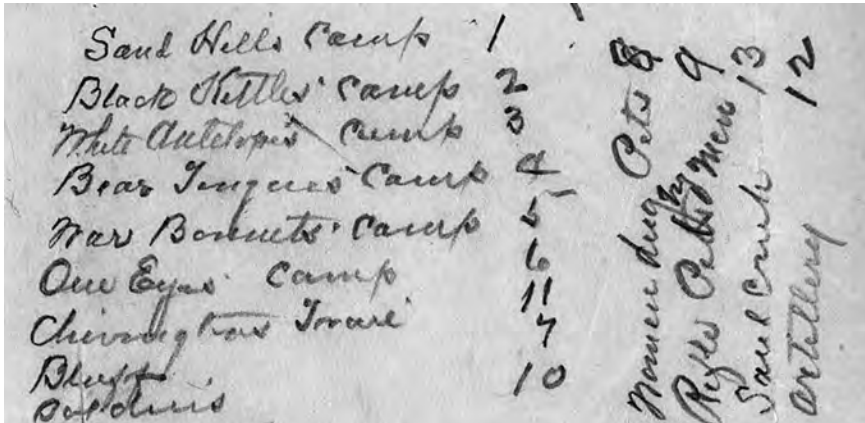 Sand Hills Camp 1
Black Kettles' Camp 2
White Antelopes Camp 3
Bear Tongues' Camp 4
War Bonnets' Camp 5
One Eyes' Camp 6
Chivingtons 11
Bluff 7
Soldiers 10
Women dug Pits 8
Rifle Pits by men 9
Sand Creek 13
Artillery 12